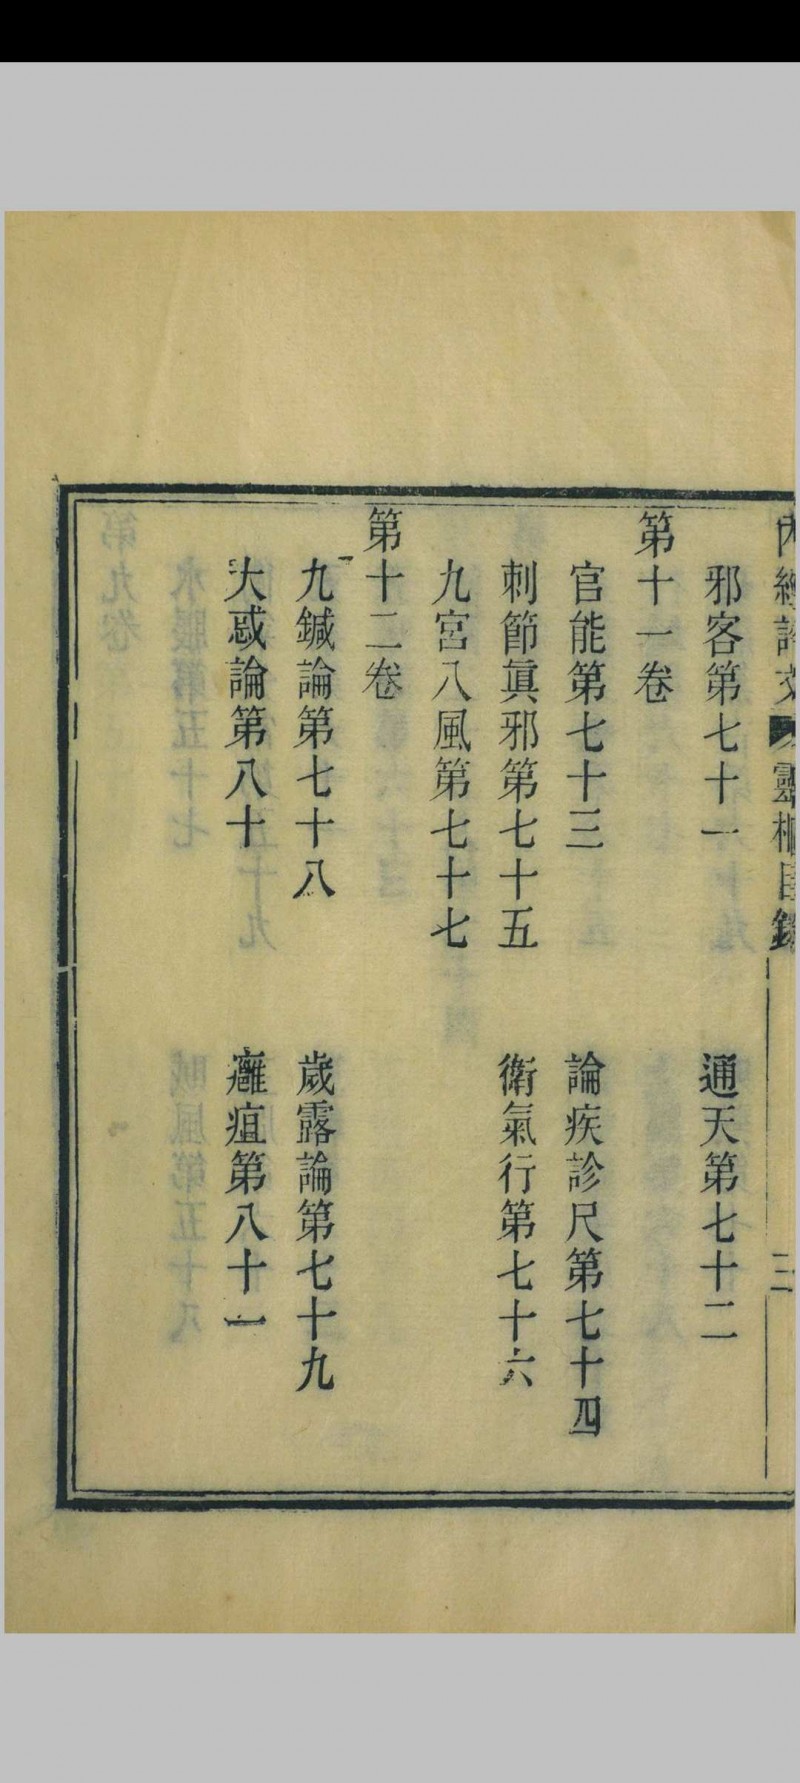 內經評文 靈樞目錄 三
邪客第七十一 通天第七十二
第十一卷
官能第七十三 論疾診尺第七十四
刺節眞邪第七十五 衛氣行第七十六
九宮八風第七十七
第十二卷
九鍼論第七十八 歲露論第七十九
大惑論第八十 癰疽第八十一